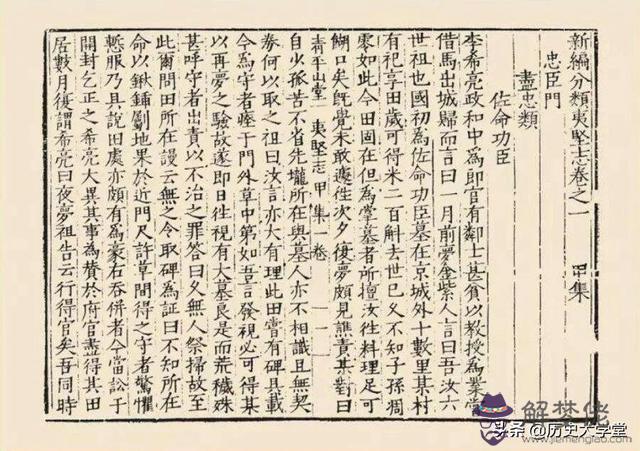 新編分類夷堅志卷之一 甲集
忠臣門
盡忠類
佐命功臣
李希亮政和中為郎官有鄰士甚貧以教授為業嘗
借馬出城歸而言曰一月前夢金紫人言曰吾汝六
世祖也國初為佐命功臣墓在京城外十數里某村
有祀享田歲可得米二百斛去世巳久不知子孫凋
零如此今田固在但為掌墓者所擅汝徃料理足可
餬口矣旣覺未敢遽徃次夕復夢頗見譙責某對曰
清平山堂 夷堅志 甲集一卷
自少孤苦不省先壠所在與墓人亦不相識且無契
劵何以取之祖曰汝言亦大有理此田嘗有碑具載
今為守者瘞于門外草中第如吾言發視必可得某
以再夢之驗故遂即日徃視有大墓良是而荒穢殊
甚呼守者出責以不治之罪答曰久無人祭掃故至
此爾問田所在謾云無之令取碑為証曰不知所在
命以鍬鍤劚地果於近門尺許草間得之守者驚懼
慙服乃具說田處亦頗有為豪右吞併者今當訟于
開封乞正之希亮大異其事為贊於府官盡得其田
居數月復謂希亮曰夜夢祖告云行得官矣吾同時
解梦佬
头条 @历史大学堂
www.jiemenglao.com